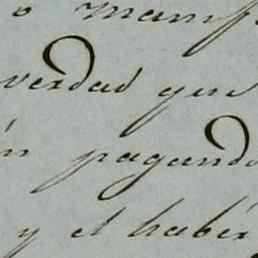 o manif
verdad que
n pagando
y el haber